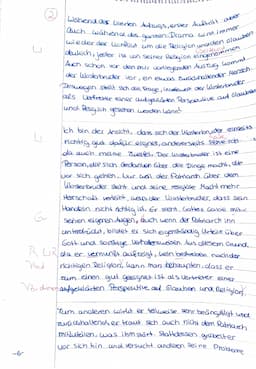 2
Während des vierten Aufzugs, erster Auftritt aber
auch während des ganzen Drama wird immer
wieder der Konflikt um die Religion
deutlich, jeder ist von seiner Religion eingenommen.
Auch schon vor dem mir vorliegenden Auszug kommt
der Klosterbruder vor, ein etwas zurückhaltender Mensch.
Deswegen stellt sich die Frage, inwieweit der Klosterbruder
als Vertreter einer aufgeklärten Perspektive auf Glauben
und Religion gesehen werden kann.
Ich bin der Ansicht, dass sich der Klosterbruder einerseits
richtig gut dafür eignet, andererseits
da auch meine Zweifel. Der Klosterbruder ist eine
Person, der sich Gedanken über die Dinge macht, die
vor sich gehen. Nur weil der Patriarch über dem
Klosterbruder steht und seine, religiöse Macht mehr
Herrschaft verleiht, weiß der Klosterbruder, dass sein
Handeln nicht richtig ist. Er sieht Gottes Gnade mit
seinen eigenen Augen, auch wenn der Patriarch ihn
unterdrückt, bildet er sich eigenständig Urteile über
Gott und sonstige Verhaltensweisen. Aus diesem Grund,
da er vernunft aufzeigt, sein bestreben nach der
richtigen Religion, kann man behaupten, dass er
zum einen gut geeignet ist als Vertreter einer
aufgeklärten Perspektive auf Glauben und Religion.
Zum anderen wirkt er teilweise sehr beängstigt und
zurückhaltend, er traut sich auch nicht dem Patriarch
mitzuteilen, was ihm passt. Stattdessen grübelt er
vor sich hin und versucht anderen seine Probleme
-6-
R
Mod